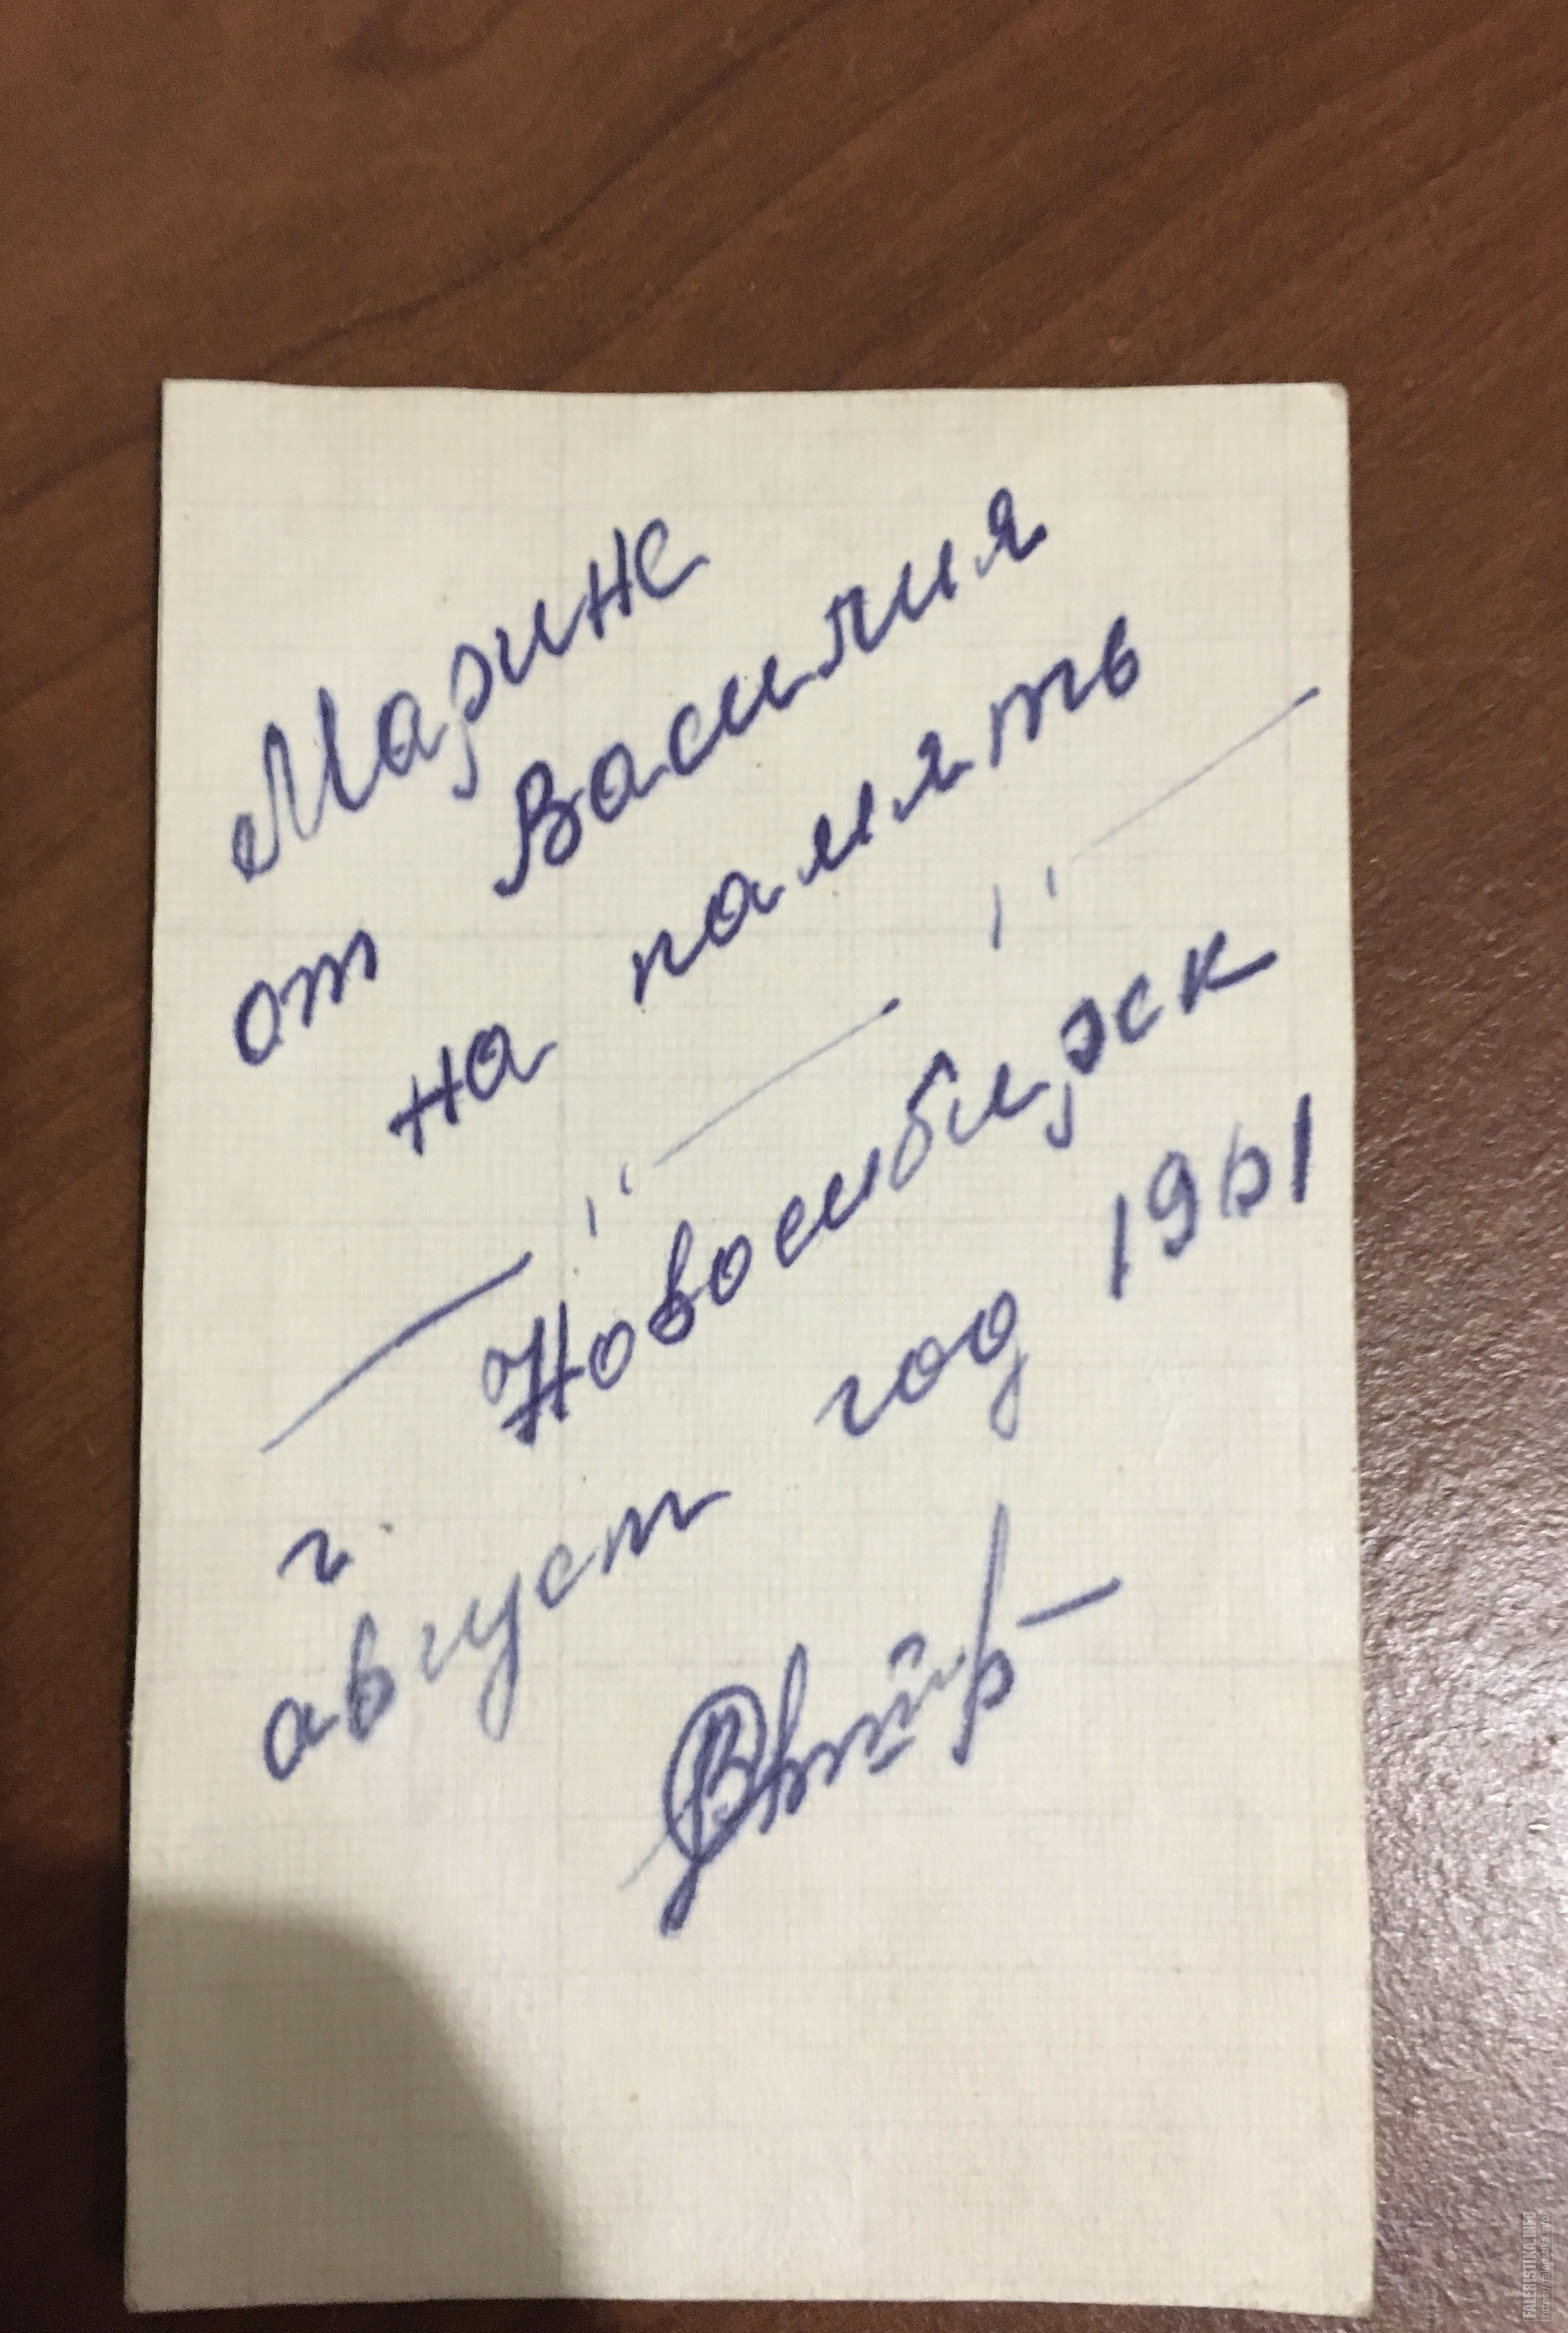 Марине
от Василия
на память
— " — " —
г. Новосибирск
август год 1961
FALERISTIKA.INFO